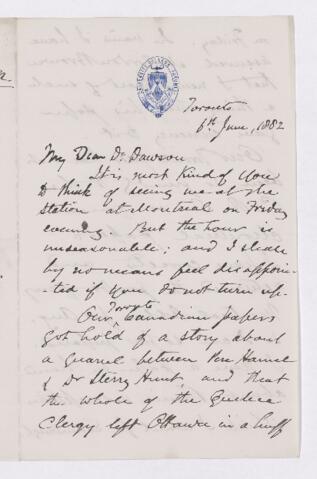 Toronto
6th June, 1882
My Dear Dr Dawson
It is most kind of you
to think of seeing me at the
station at Montreal on Friday
evening. But the hour is
unseasonable; and I shall
by no means feel disappoin-
ted if you do not turn up.
Our Toronto Canadian papers
got hold of a story about
a quarrel between Hamel
& Dr Sterry Hunt, and that
the whole of the Quebec
Clergy left Ottawa in a huff